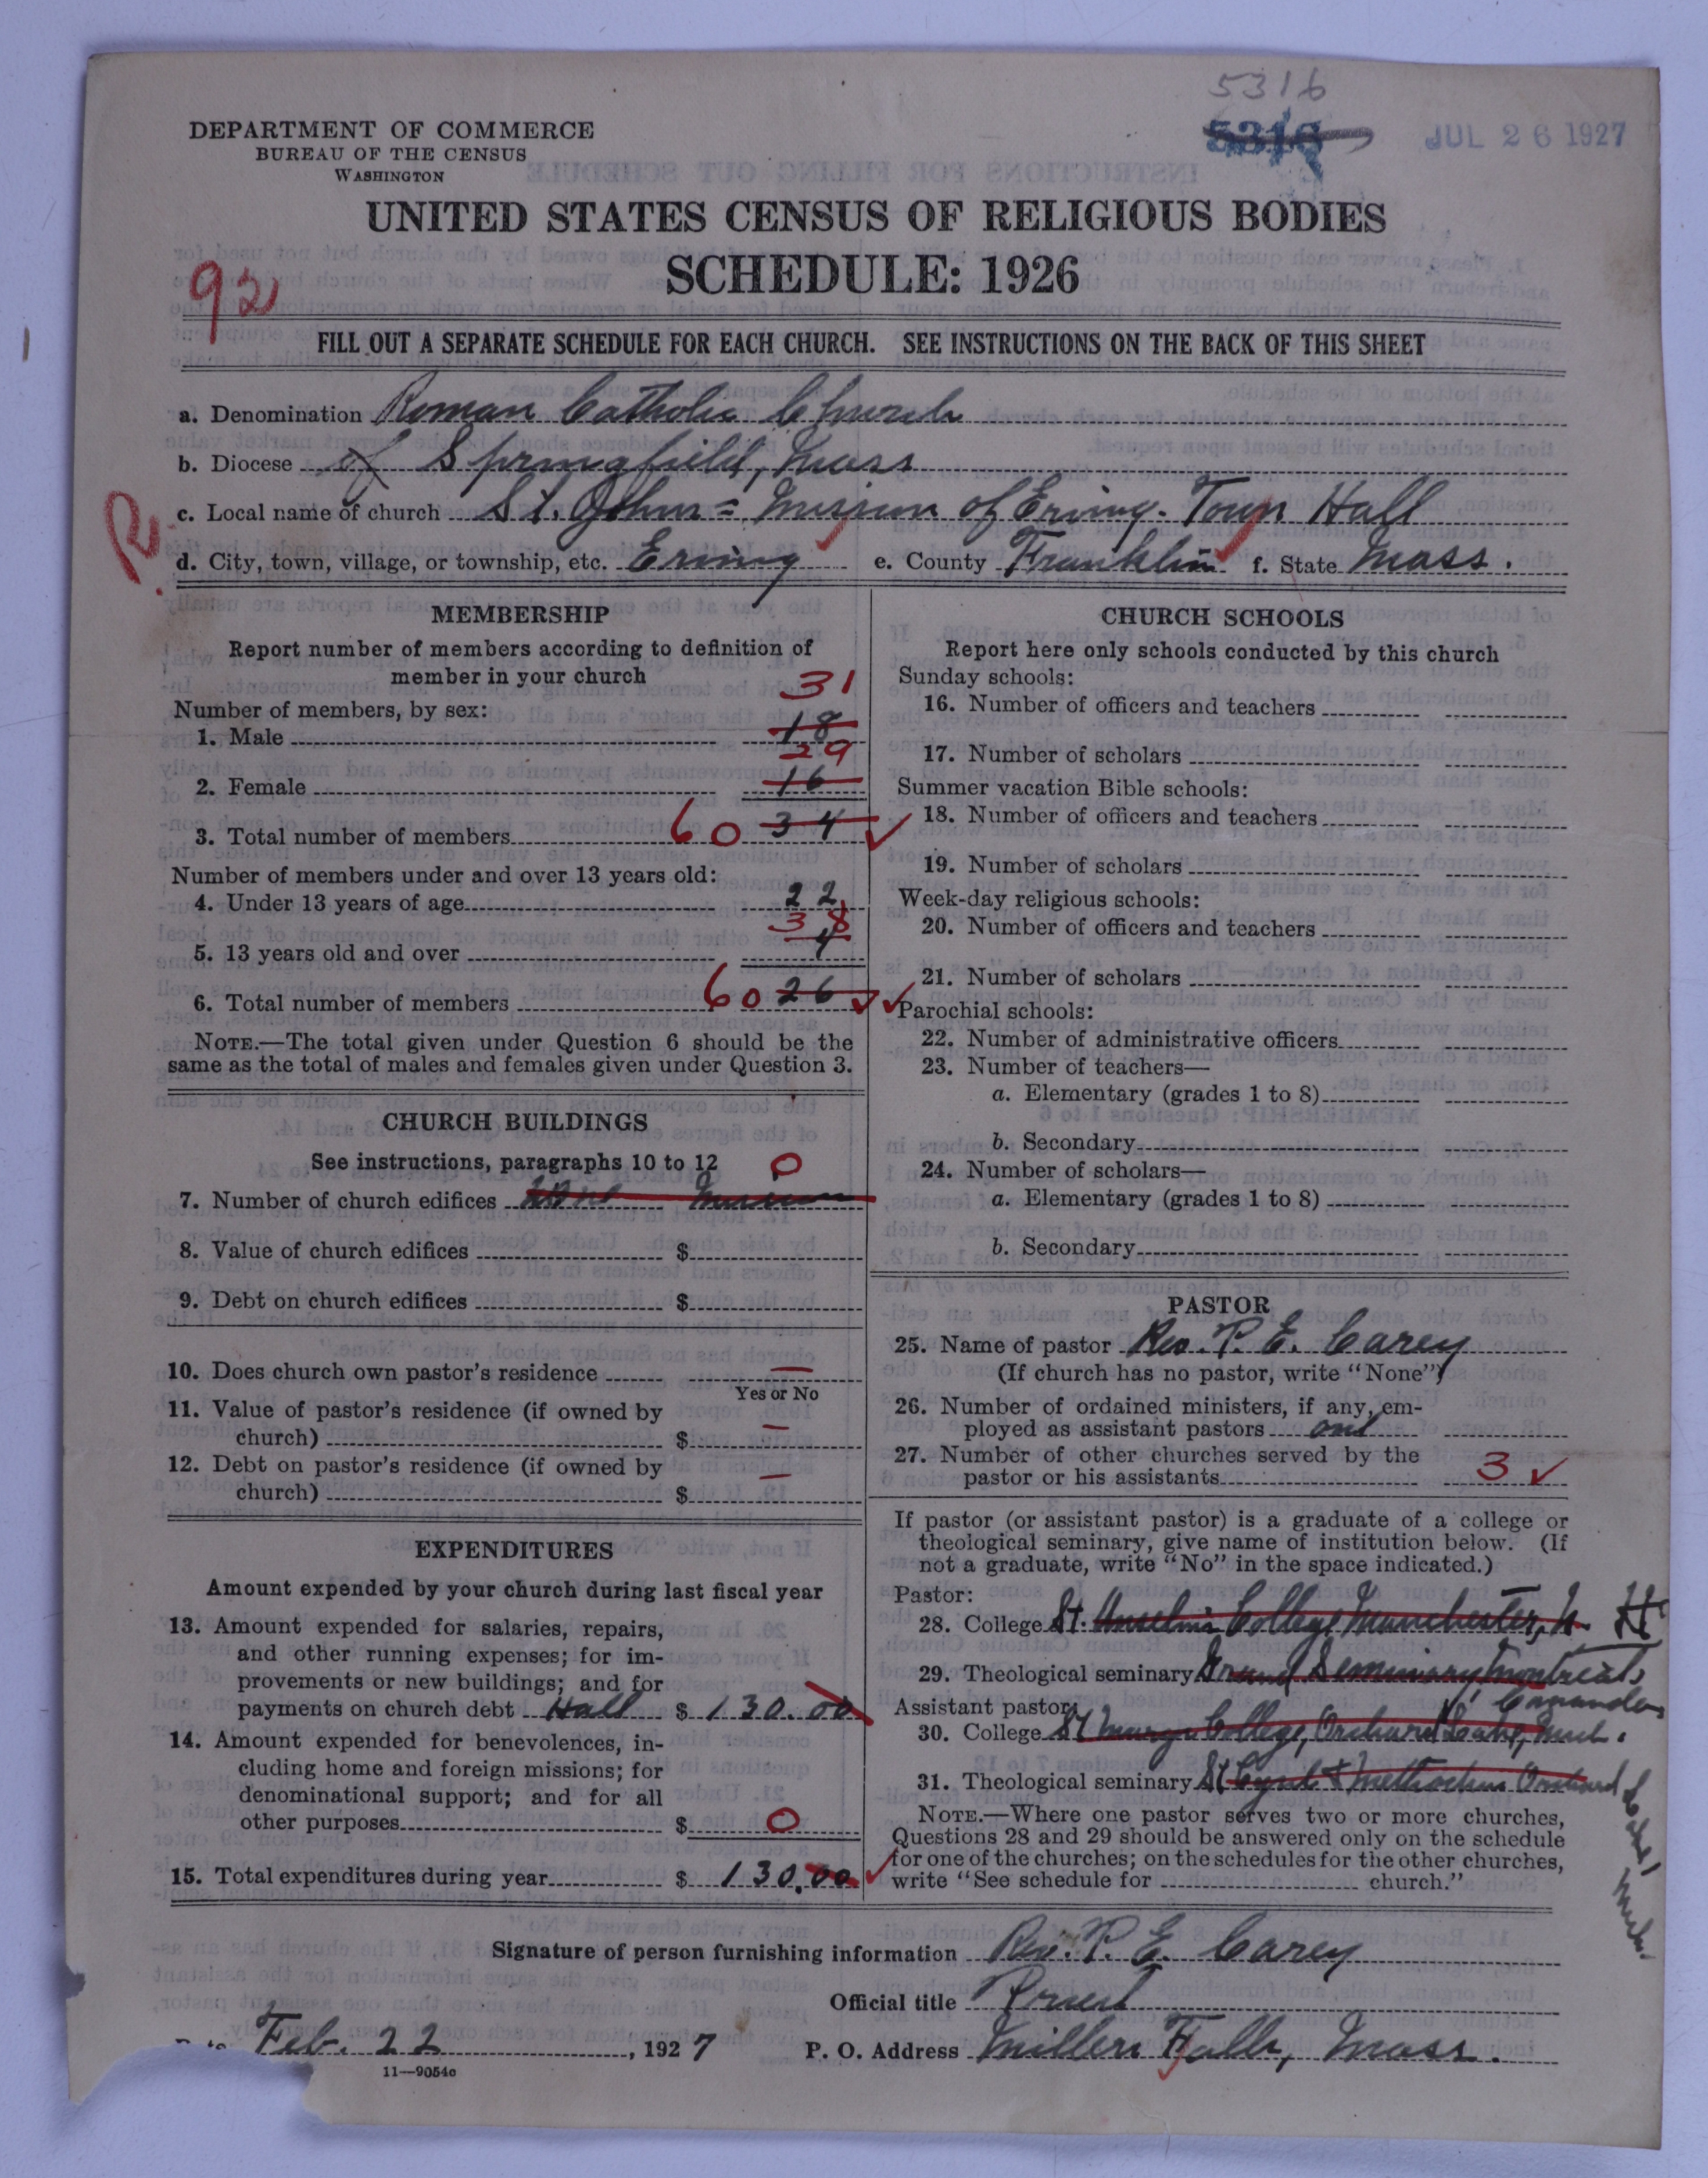 5316
5316
JUL 26 1927
DEPARTMENT OF COMMERCE
BUREAU OF THE CENSUS
WASHINGTON
UNITED STATES CENSUS OF RELIGIOUS BODIES
SCHEDULE: 1926
92
FILL OUT A SEPARATE SCHEDULE FOR EACH CHURCH. SEE INSTRUCTIONS ON THE BACK OF THIS SHEET
a. Denomination Roman Catholic Church
b. Diocese of Springfield, Mass
R
c. Local name of church St. Johns = Mission of Erving. Town Hall
d. City, town, village, or township, etc. Erving e. County Franklin f. State Mass.
MEMBERSHIP
Report number of members according to definition of
member in your church
31
Number of members, by sex:
1. Male 18
29
2. Female 16
3. Total number of members 60 34 ✓
Number of members under and over 13 years old:
4. Under 13 years of age 22
38
5. 13 years old and over 4
6. Total number of members 60 26 ✓
NOTE.—The total given under Question 6 should be the
same as the total of males and females given under Question 3.
CHURCH BUILDINGS
See instructions, paragraphs 10 to 12 0
7. Number of church edifices Mission
8. Value of church edifices $
9. Debt on church edifices $
10. Does church own pastor's residence —
Yes or No
11. Value of pastor's residence (if owned by
church) $ —
12. Debt on pastor's residence (if owned by
church) $ —
EXPENDITURES
Amount expended by your church during last fiscal year
13. Amount expended for salaries, repairs,
and other running expenses; for im-
provements or new buildings; and for
payments on church debt Hall $ 130.00
14. Amount expended for benevolences, in-
cluding home and foreign missions; for
denominational support; and for all
other purposes $ 0
15. Total expenditures during year $ 130.00 ✓
CHURCH SCHOOLS
Report here only schools conducted by this church
Sunday schools:
16. Number of officers and teachers
17. Number of scholars
Summer vacation Bible schools:
18. Number of officers and teachers
19. Number of scholars
Week-day religious schools:
20. Number of officers and teachers
21. Number of scholars
✓ Parochial schools:
22. Number of administrative officers
23. Number of teachers—
a. Elementary (grades 1 to 8)
b. Secondary
24. Number of scholars—
a. Elementary (grades 1 to 8)
b. Secondary
PASTOR
25. Name of pastor Rev. P. E. Carey
(If church has no pastor, write "None")
26. Number of ordained ministers, if any, em-
ployed as assistant pastors one
27. Number of other churches served by the
pastor or his assistants 3 ✓
If pastor (or assistant pastor) is a graduate of a college or
theological seminary, give name of institution below. (If
not a graduate, write "No" in the space indicated.)
Pastor:
28. College St. Anselm's College Manchester, N. H
29. Theological seminary Grand Seminary Montreal,
Canada
Assistant pastor:
30. College St Marys College, Orchard Lake, Mich.
31. Theological seminary St Cyril & Methodius Orchard
Lake, Mich.
NOTE.—Where one pastor serves two or more churches,
Questions 28 and 29 should be answered only on the schedule
for one of the churches; on the schedules for the other churches,
write "See schedule for church."
Signature of person furnishing information Rev. P. E. Carey
Official title Priest
Feb. 22, 1927 P. O. Address Millers Falls, Mass.
11—9054c